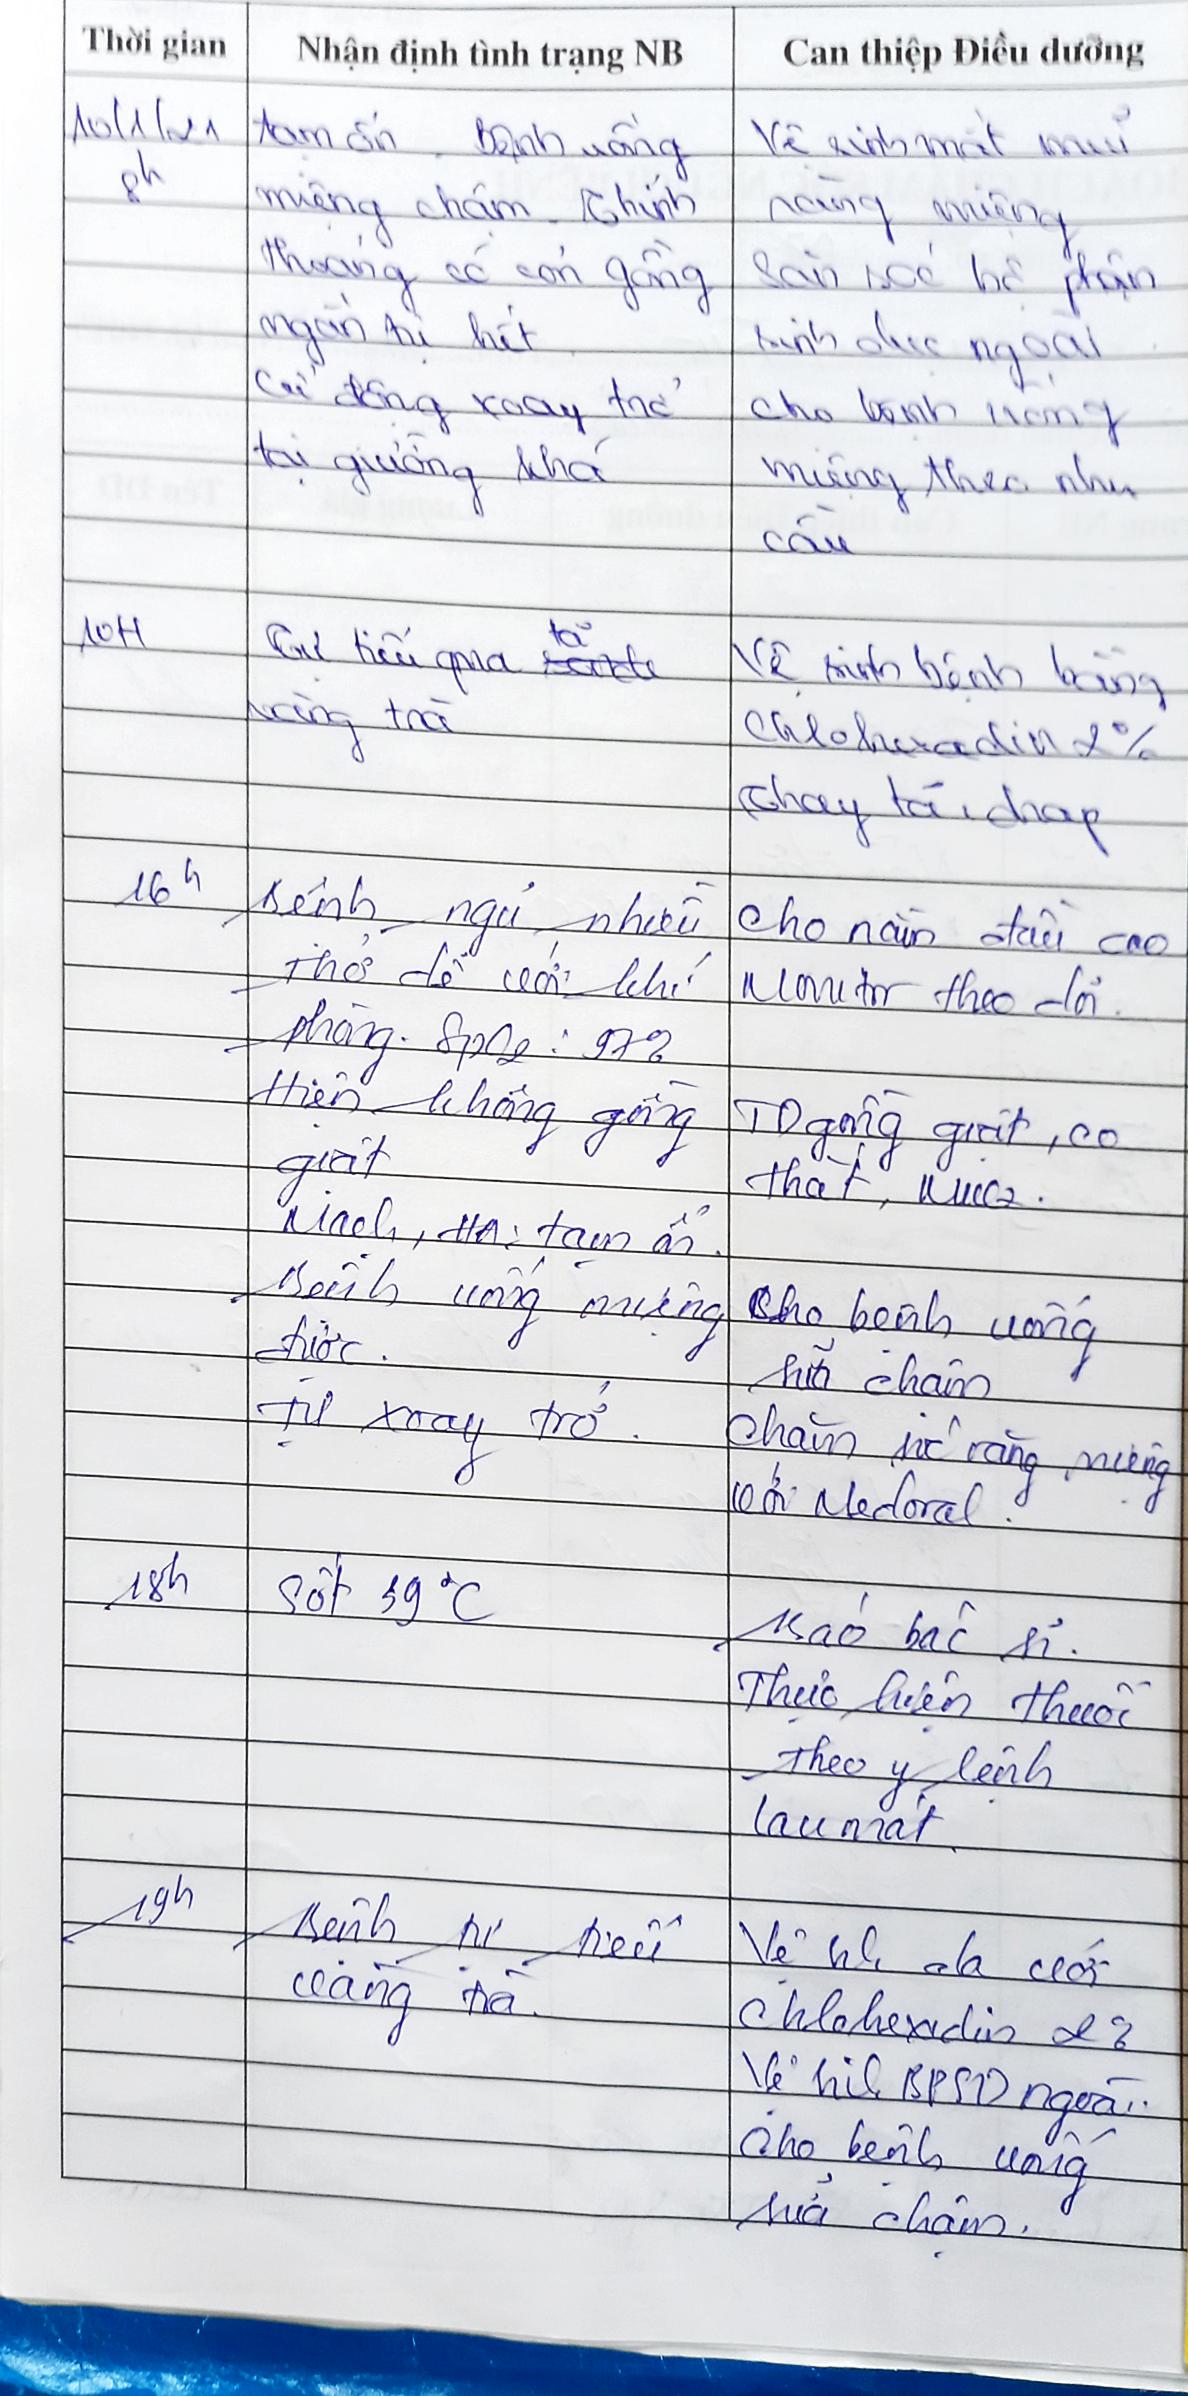 Thời gian
Nhận định tình trạng NB
Can thiệp Điều dưỡng
10/1/21
8h
tạm ổn. Bệnh uống
miệng chậm. Thỉnh
thoảng có cơn gồng
ngắn tự hết
Cử động xoay trở
tại giường khá
Vệ sinh mắt mũi
răng miệng
Săn sóc bộ phận
sinh dục ngoài
cho bệnh uống
miệng theo nhu
cầu
10H
Tự tiểu qua tã
vàng trà
Vệ sinh bệnh bằng
Chlohexadin 2%
Thay tã, drap
16h
Bệnh ngủ nhiều
Thở dễ với khí
phòng. SpO2: 97%
Hiện không gồng
giật
Mạch, HA: tạm ổn.
Bệnh uống miệng
được.
Tự xoay trở.
Cho nằm đầu cao
Monitor theo dõi.
TD gồng giật, co
thắt,
Cho bệnh uống
sữa chậm
Chăm sóc răng miệng
với Medoral.
18h
Sốt 39°C
Báo bác sĩ.
Thực hiện thuốc
theo y lệnh
Lau mát
19h
Bệnh tự tiểu
vàng trà.
Vệ sinh da với
Chlohexadin 2%
Vệ sinh BPSD ngoài
Cho bệnh uống
sữa chậm.